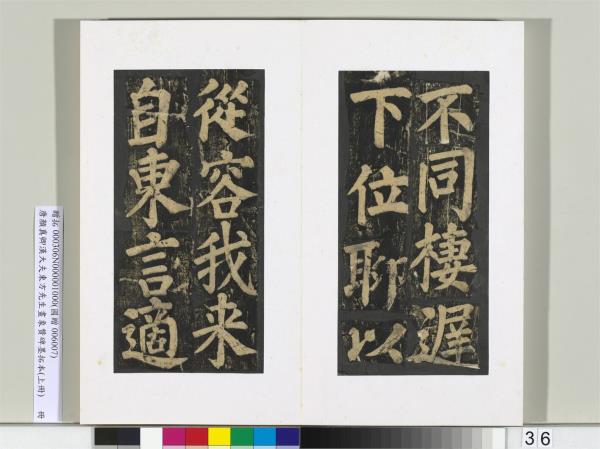 不同棲遲
下位聊以
從容我来
自東言適
贈拓 000306N000001000(國贈 006007)
唐顏真卿漢大夫東方先生畫象贊碑墨拓本(上冊) 冊
36